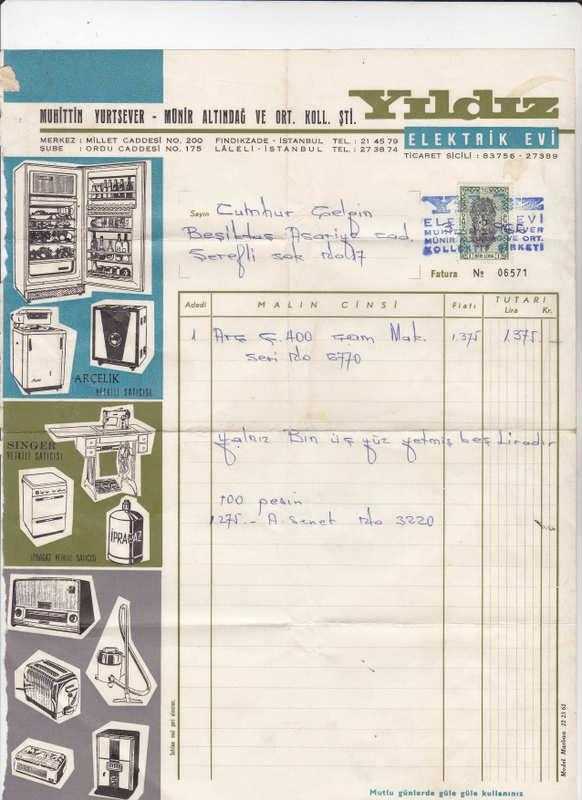 Yıldız
MUHİTTİN YURTSEVER - MÜNİR ALTINDAĞ VE ORT. KOLL. ŞTİ.
ELEKTRİK EVİ
MERKEZ : MİLLET CADDESİ NO. 200 FINDIKZADE - İSTANBUL TEL. : 21 45 79
ŞUBE : ORDU CADDESİ NO. 175 LÂLELİ - İSTANBUL TEL. : 27 38 74
TİCARET SİCİLİ : 83756 - 27389
Sayın Cumhur Çelpin
Beşiktaş Asariye cad.
Şerefli sok No 17
YILDIZ
ELEKTRİK EVİ
MUHİTTİN YURTSEVER
MÜNİR ALTINDAĞ VE ORT.
KOLLEKTİF ŞİRKETİ
BİR LİRA
Fatura No 06571
Adedi MALIN CİNSİ Fiatı TUTARI
Lira Kr.
1 Arç Ç. 400 çam Mak. 1.375 1.375.-
seri No 6770
Yalnız Bin üç yüz yetmiş beş Liradır
100 peşin
1.275.- A. Senet No 3220
ARÇELİK
YETKİLİ SATICISI
SINGER
YETKİLİ SATICISI
İPRAGAZ
İPRAGAZ YETKİLİ SATICISI
Satılan mal geri alınmaz.
Model Matbaa: 22 23 62
Mutlu günlerde güle güle kullanınız